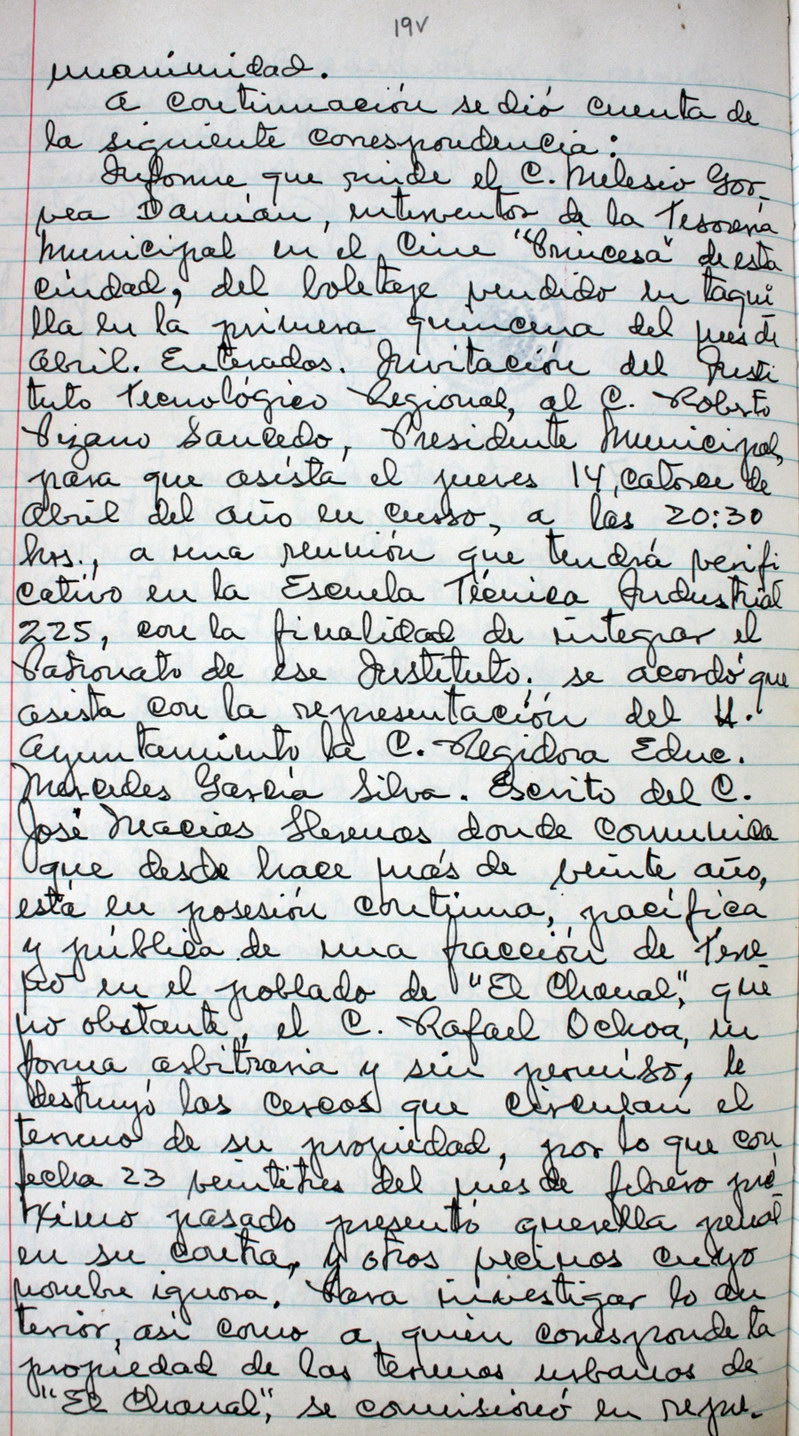 19v
unanimidad.
A continuación se dió cuenta de
la siguiente correspondencia:
Informe que rinde el C. Melesio Gor-
vea Damián, interventor de la Tesorería
Municipal en el Cine "Princesa" de esta
ciudad, del boletaje vendido en taqui
lla en la primera quincena del mes de
abril. Enterados. Invitación del Insti
tuto Tecnológico Regional, al C. Roberto
Pizano Saucedo, Presidente Municipal,
para que asista el jueves 14, catorce de
abril del año en curso, a las 20:30
hrs., a una reunión que tendrá verifi
cativo en la Escuela Técnica Industrial
225, con la finalidad de integrar el
Patronato de ese Instituto. se acordó que
asista con la representación del H.
Ayuntamiento la C. Regidora Educ.
Mercedes García Silva. Escrito del C.
José Macías Llerenas donde comunica
que desde hace más de veinte año,
está en posesión continua, pacífica
y pública de una fracción de terre
no en el poblado de "El Chanal", que
no obstante, el C. Rafael Ochoa, en
forma arbitraria y sin permiso, le
destruyó los cercos que circulan el
terreno de su propiedad, por lo que con
fecha 23 veintitres del mes de febrero pró
ximo pasado presentó querella penal
en su contra, y otros vecinos cuyo
nombre ignora. Para investigar lo an
terior, así como a quién corresponde la
propiedad de los terrenos urbanos de
"El Chanal", se comisionó en repre-